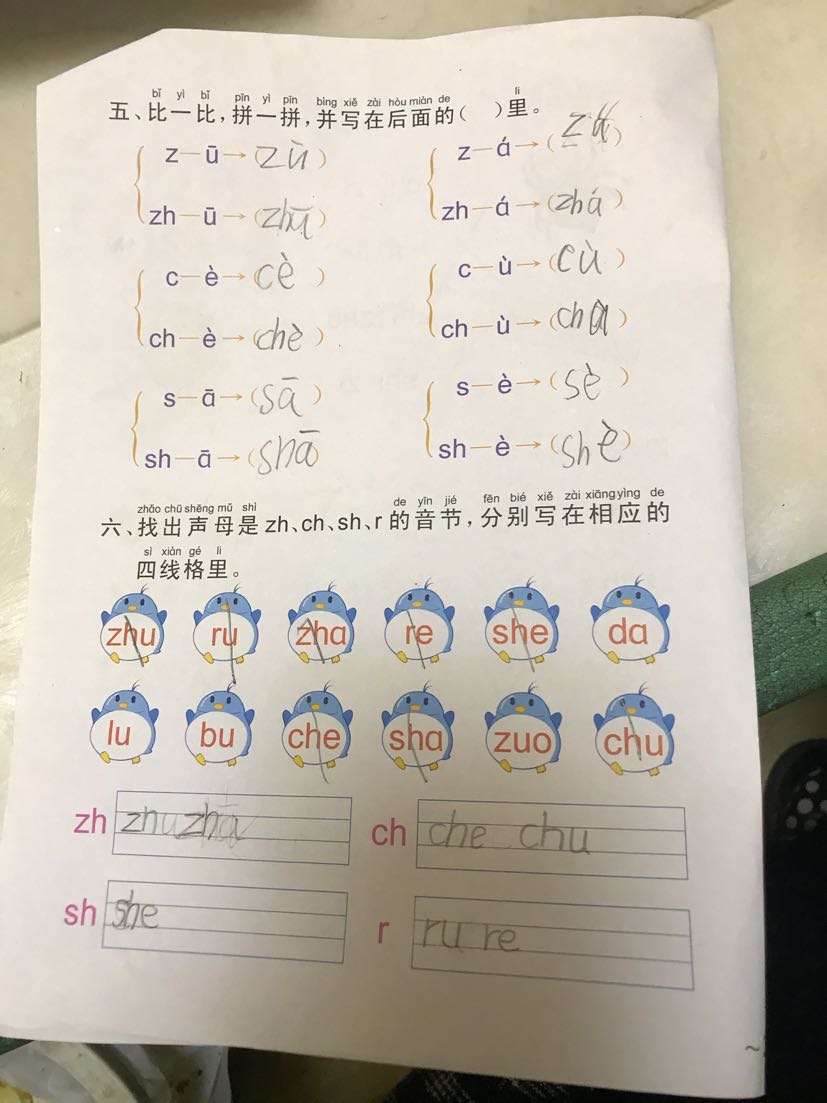 bǐ yì bǐ pīn yì pīn bìng xiě zài hòu miàn de li
五、比一比，拼一拼，并写在后面的( )里。
z—ū→(zù) z—á→(zá)
zh—ū→(zhū) zh—á→(zhá)
c—è→(cè) c—ù→(cù)
ch—è→(chè) ch—ù→( )
s—ā→(sā) s—è→(sè)
sh—ā→(shā) sh—è→(shè)
zhǎo chū shēng mǔ shì de yīn jié fēn bié xiě zài xiāng yìng de
六、找出声母是 zh、ch、sh、r 的音节，分别写在相应的
sì xiàn gé li
四线格里。
zhu ru zha re she da
lu bu che sha zuo chu
zh zhu zha ch che chu
sh she r ru re